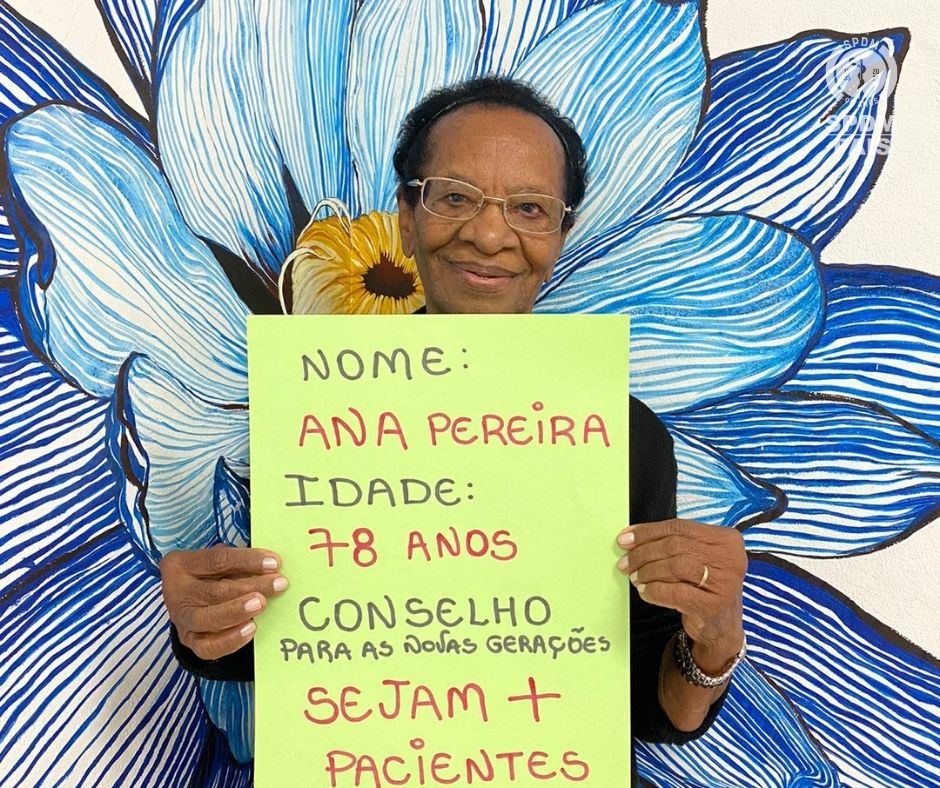 SPDM
SPDM
PAIS
NOME:
ANA PEREIRA
IDADE:
78 ANOS
CONSELHO
PARA AS NOVAS GERAÇÕES
SEJAM +
PACIENTES